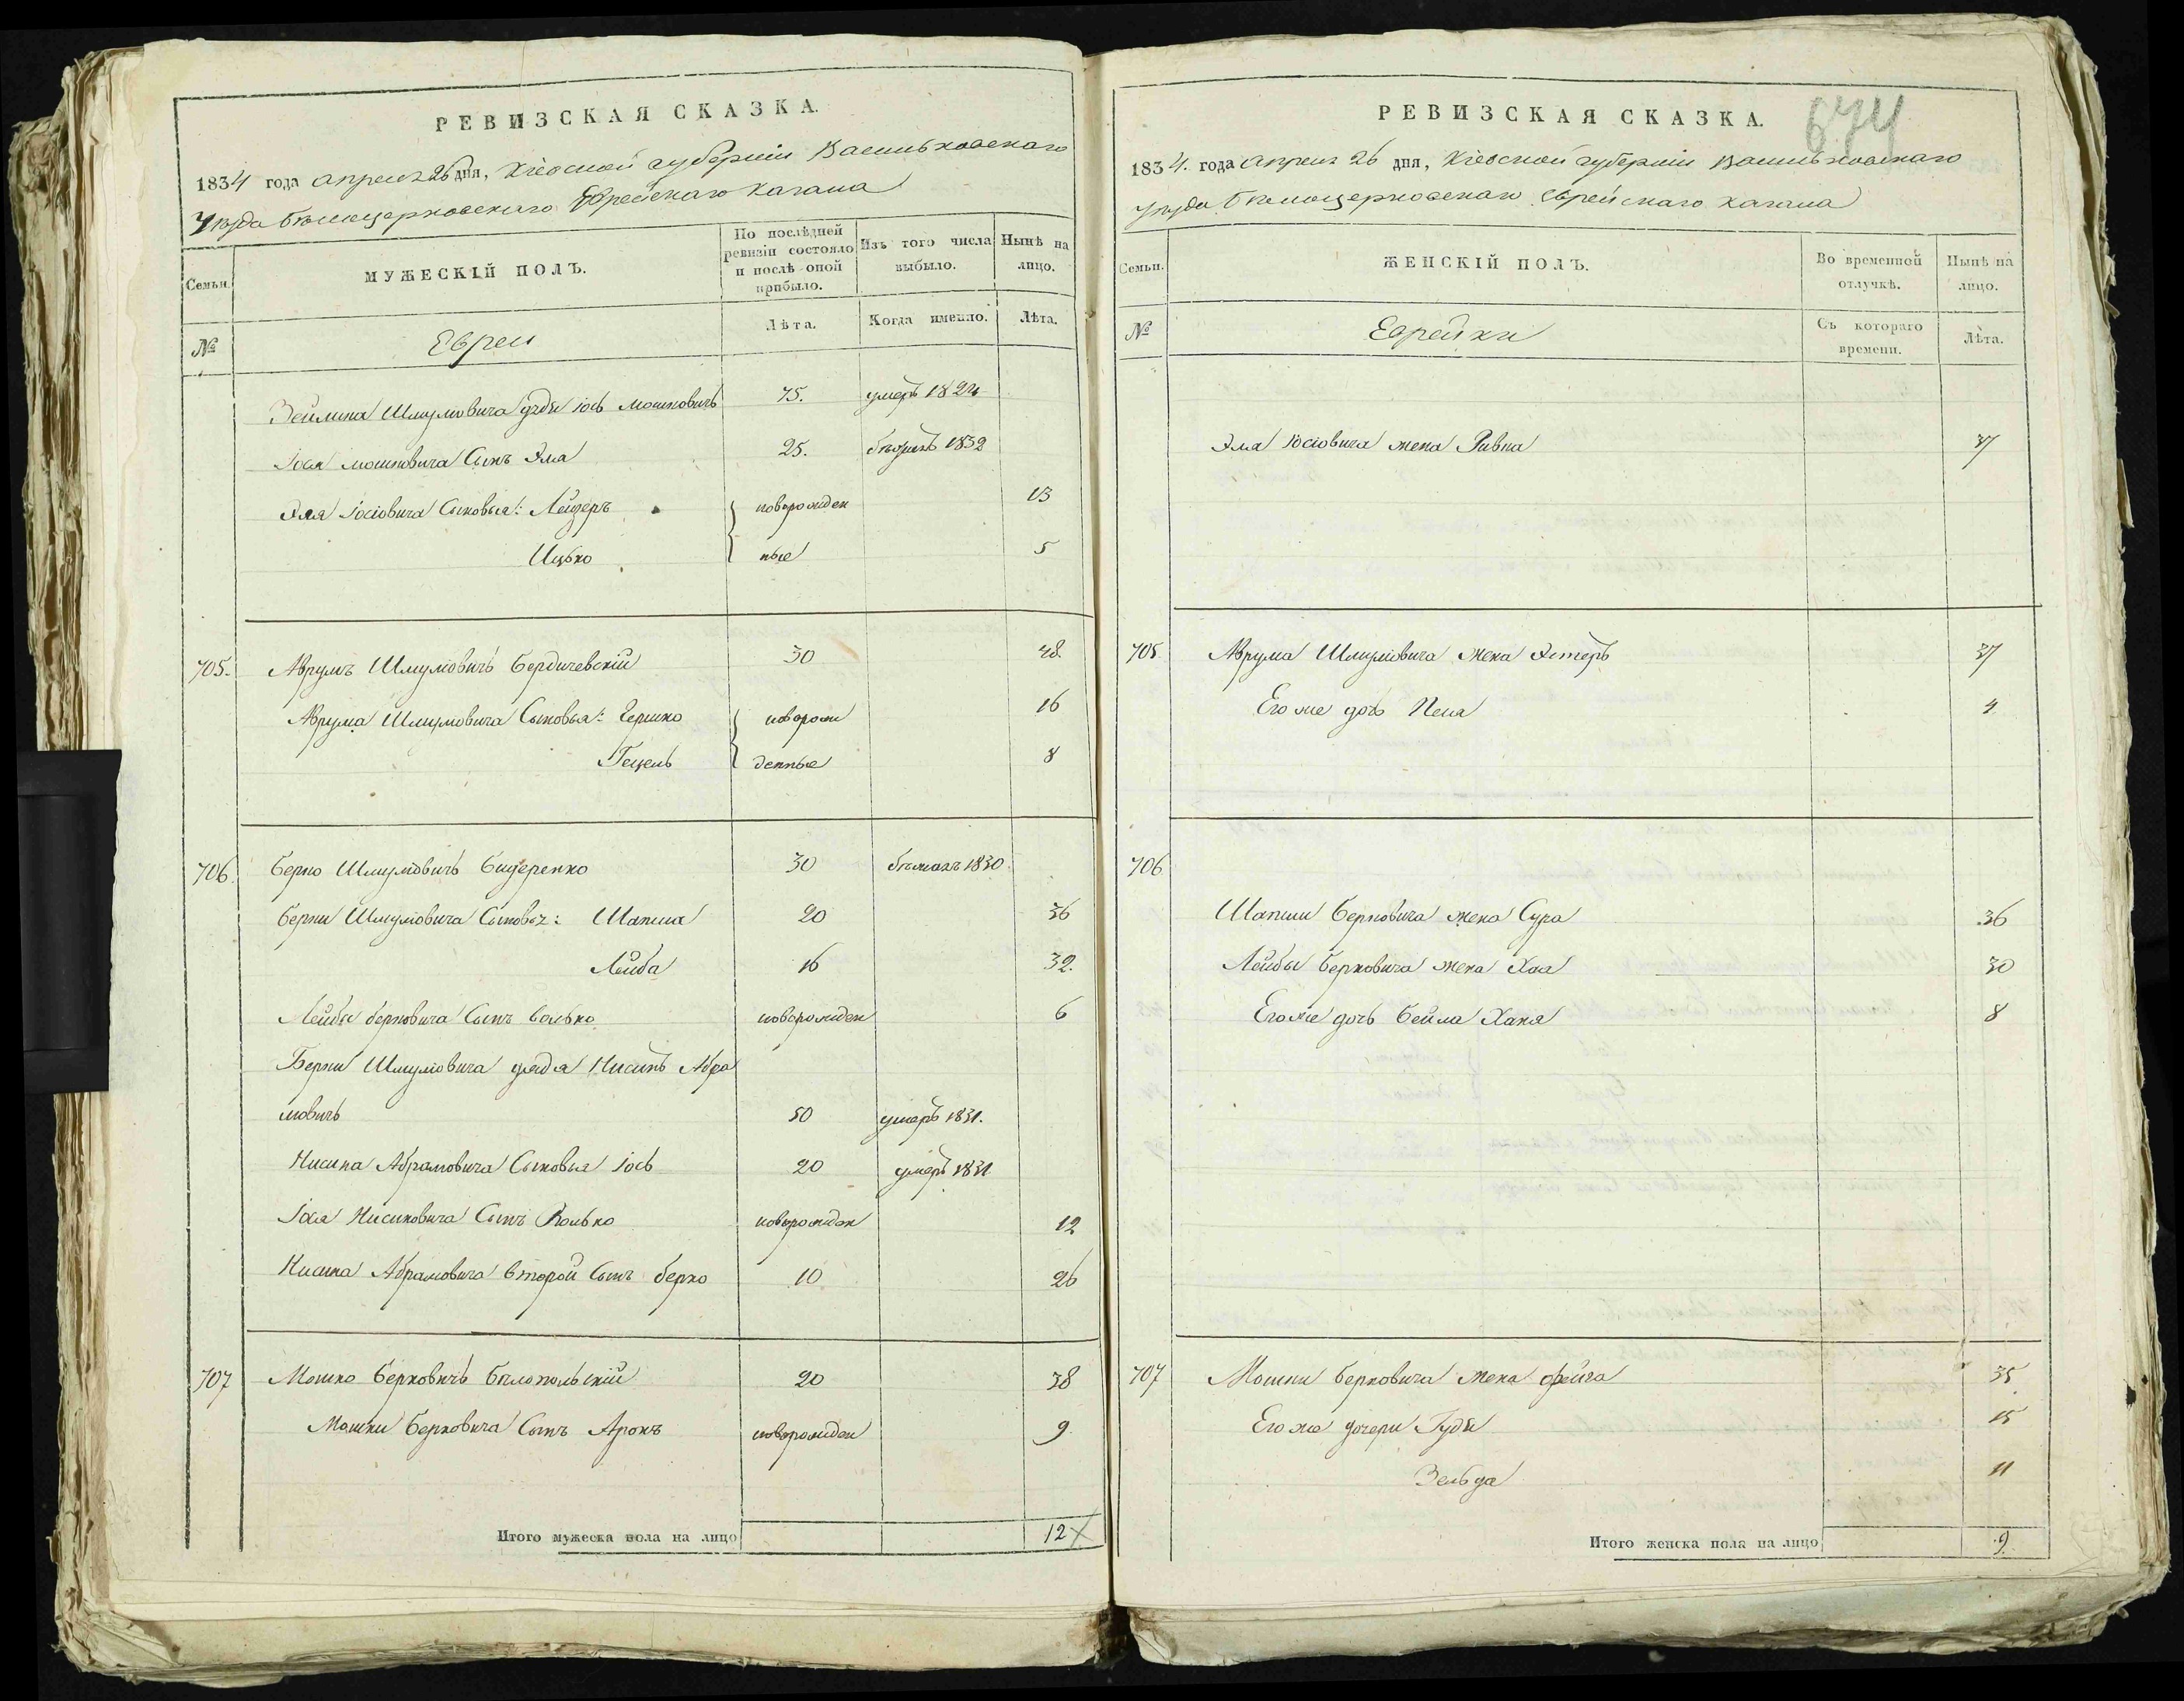 РЕВИЗСКАЯ СКАЗКА.
1834 года апреля 26 дня, Кіевской губерніи Васильковскаго
Уезда Белоцерковскаго Еврейскаго Кагала
Семьи.
МУЖЕСКІЙ ПОЛЪ.
По последней ревизіи состояло и после оной прибыло.
Изъ того числа выбыло.
Ныне на лицо.
№
Евреи
Лета.
Когда именно.
Лета.
Зейлика Шмулиовича дядя Іось Мошковичъ 75. умеръ 1824
Іося Мошковича Сынъ Эля 25. 1832
Эля Іосіовича Сыновья: Лейзеръ новорожден 13
Ицько ные 5
705. Аврумъ Шмуліовичъ Бердичевскій 30 48.
Аврума Шмуліовича Сыновья: Гершко новорож 16
Гецель денные 8
706. Берко Шмуліовичъ 30 бежалъ 1830
Берки Шмуліовича Сыновья: Шапша 20 36
Лейба 16 32.
Лейбы Берковича Сынъ Волько новорожден 6
Берки Шмуліовича дядя Нисинъ Абра
мовичъ 50 умеръ 1831.
Нисина Абрамовича Сыновья Іось 20 умеръ 1831
Іося Нисиновича Сынъ Волько новорожден 12
Нисина Абрамовича второй Сынъ Берко 10 26
707 Мошко Берковичъ Белопольскій 20 38
Мошки Берковича Сынъ Аронъ новорожден 9
Итого мужеска пола на лицо 12
РЕВИЗСКАЯ СКАЗКА.
674
1834. года апреля 26 дня, Кіевской губерніи Васильковскаго
уезда Белоцерковскаго Еврейскаго Кагала
Семьи.
ЖЕНСКІЙ ПОЛЪ.
Во временной отлучкѣ.
Ныне на лицо.
№
Еврейки
Съ котораго времени.
Лета.
Эля Іосіовича жена Ривка 37
705 Аврума Шмуліовича жена Эстеръ 37
Его же дочь Песя 4
706
Шапши Берковича жена Сура 36
Лейбы Берковича жена Хая 30
Его же дочь Бейла Хана 8
707 Мошки Берковича жена Фейга 35
Его же дочери Гудя 15
Зельда 11
Итого женска пола на лицо 9.